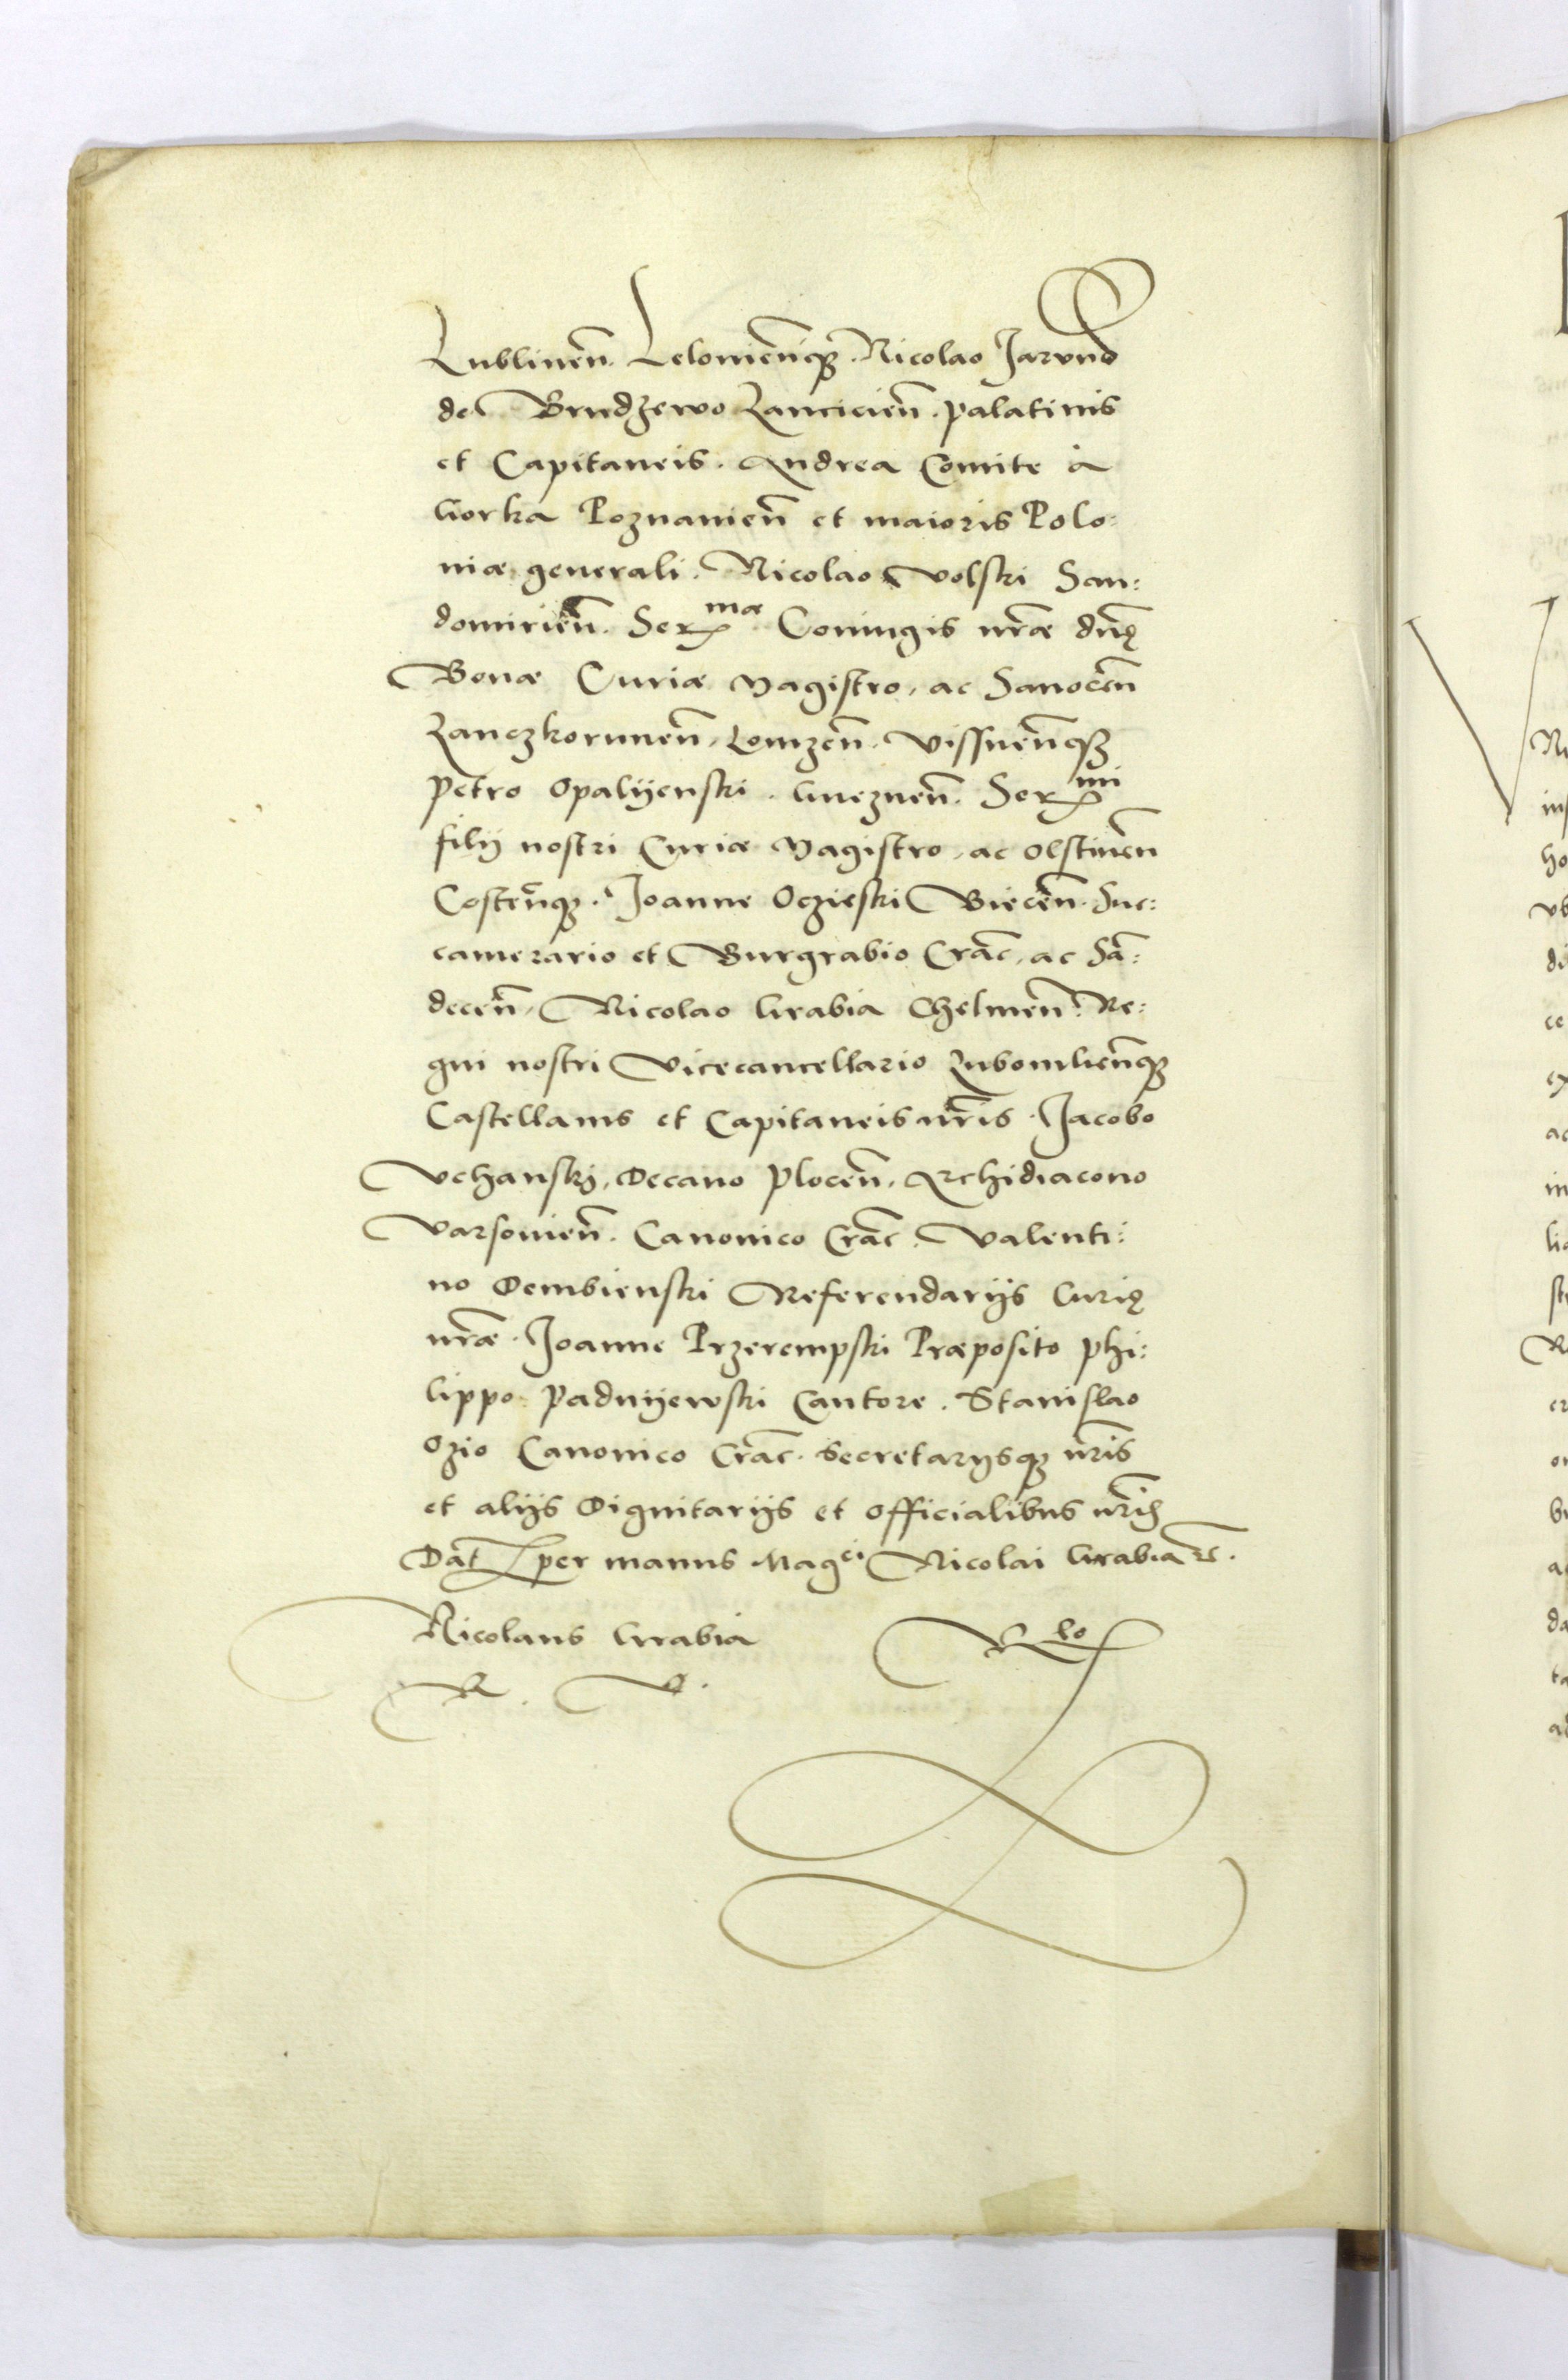 Lublinen̄. Leloviēn̄q₃. Nicolao Jarvnd
de Brudzewo Lancicien̄. palatinis
et Capitaneis. Andrea Comite à
Gorka Poznanien̄ et maioris Polo:
niæ generali. Nicolao Volski San:
domirien̄. Ser^mæ Coniugis nr̄æ dn̄ę
Bonæ Curiæ Magistro, ac Sanocen̄
Lanczkorunen̄, Lomzen̄. Vissnen̄q₃
Petro Opalijenski. Gneznen̄. Ser^mi
filij nostri Curiæ Magistro, ac Olstinen̄
Costen̄q₃. Joanne Oczieski Biecen̄. Suc:
camerario et Burgrabio Crac̄, ac Sā:
decen̄, Nicolao Grabia Chelmen̄. Re:
gni nostri Vicecancellario Lubomlien̄q₃
Castellanis et Capitaneis nr̄is. Jacobo
Vchanskj, Decano Plocen̄, Archidiacono
Varsovien̄. Canonico Crac̄. Valenti:
no Dembienski Referendarijs Curię
nr̄æ. Joanne Przerempski Præposito Phi:
lippo Padnijewski Cantore. Stanislao
Ozio Canonico Crac̄. Secretarijsq₃ nr̄is
et alijs Dignitarijs et Officialibus nr̄is
Dat̄ per manus Mag^ci Nicolai Grabia ꝛc.
Nicolaus Grabia
R. V.